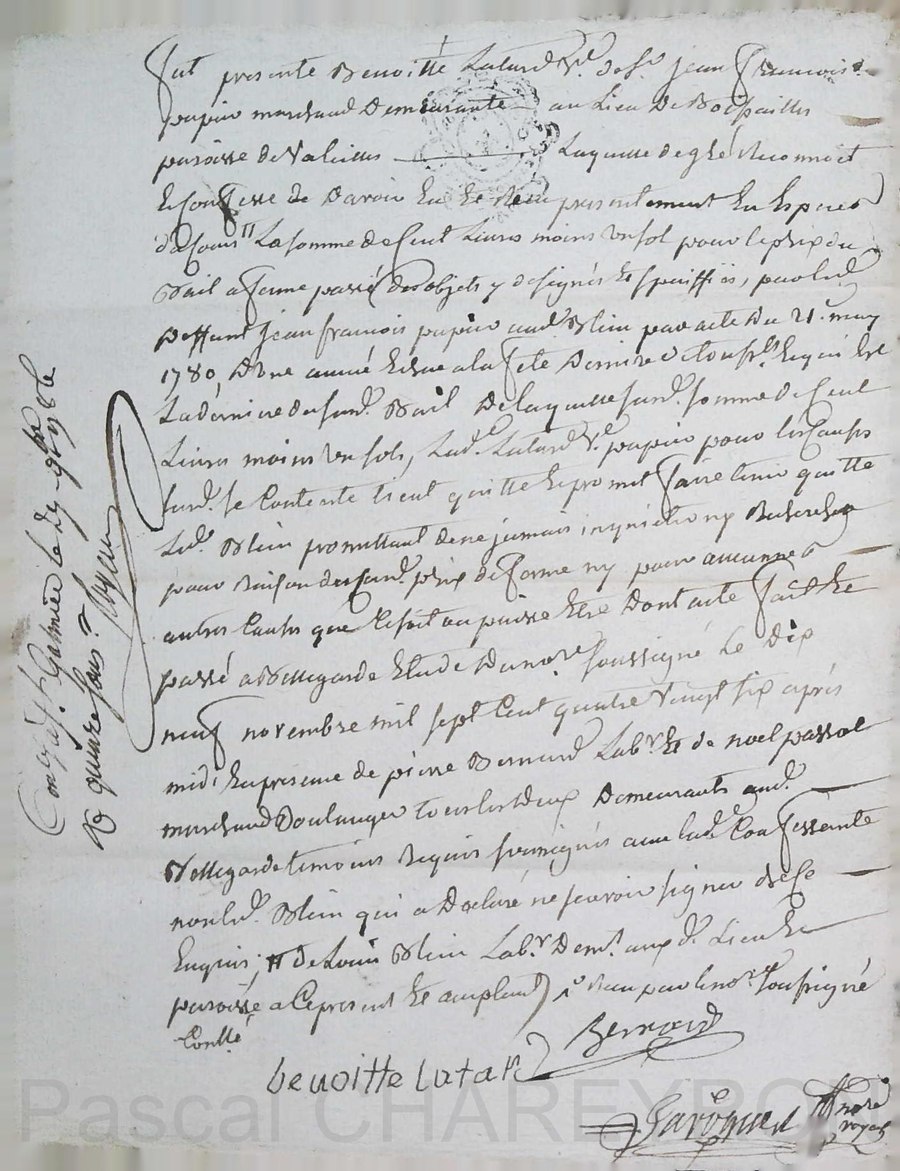 fut presente Benoitte Latard Ve. de Sr. Jean François
papier marchand Demeurante au Lieu de
paroisse de Valeilles Laquelle de gré Reconnoit
et Confesse de Davoir Eu et Reçu presentement En Espece
da cours # La somme de Cent Livres moins un sol pour le prix du
Bail a ferme passé des objets y designés et speciffiés, par led.
Deffunt Jean françois papier aud. Blein par acte Du 21e. may
1780, D'une année Echue a la fete Derniere de tous sts. Lequel Est
La derniere dud. Bail De laquelle susd. somme de Cent
Livres moins un sols, Lad. Latard Ve. papier pour les Causes
susd. se Contente tient quitte et promet faire tenir quitte
Led. Blein promettant de ne jamais inquieter ny Rechercher
pour Raison des susd. prix de ferme ny pour aucunnes
autres Causes que Ce soit ou puisse Etre Dont acte fait et
passé a Bellegarde Etude Du nore. soussigné Le Dix
neuf novembre mil sept Cent quatre vingt six après
midi En presence de pierre Bernard Labr. et de noel passot
marchand Boulanger tous les deux Demeurants aud.
Bellegarde temoins Requis soussignés avec lad. Confessante
non led. Blein qui a Declaré ne scavoir signer de ce
Enquis; # de Louis Blein Labr. Demt. aux d. Lieu et
paroisse a Ce present et acceptant) par le nore. soussigné
Conllé
Benoitte Latard Bernard
nore
royal
Conlé à St. Galmier le 29 9bre 1786
R quinze sous